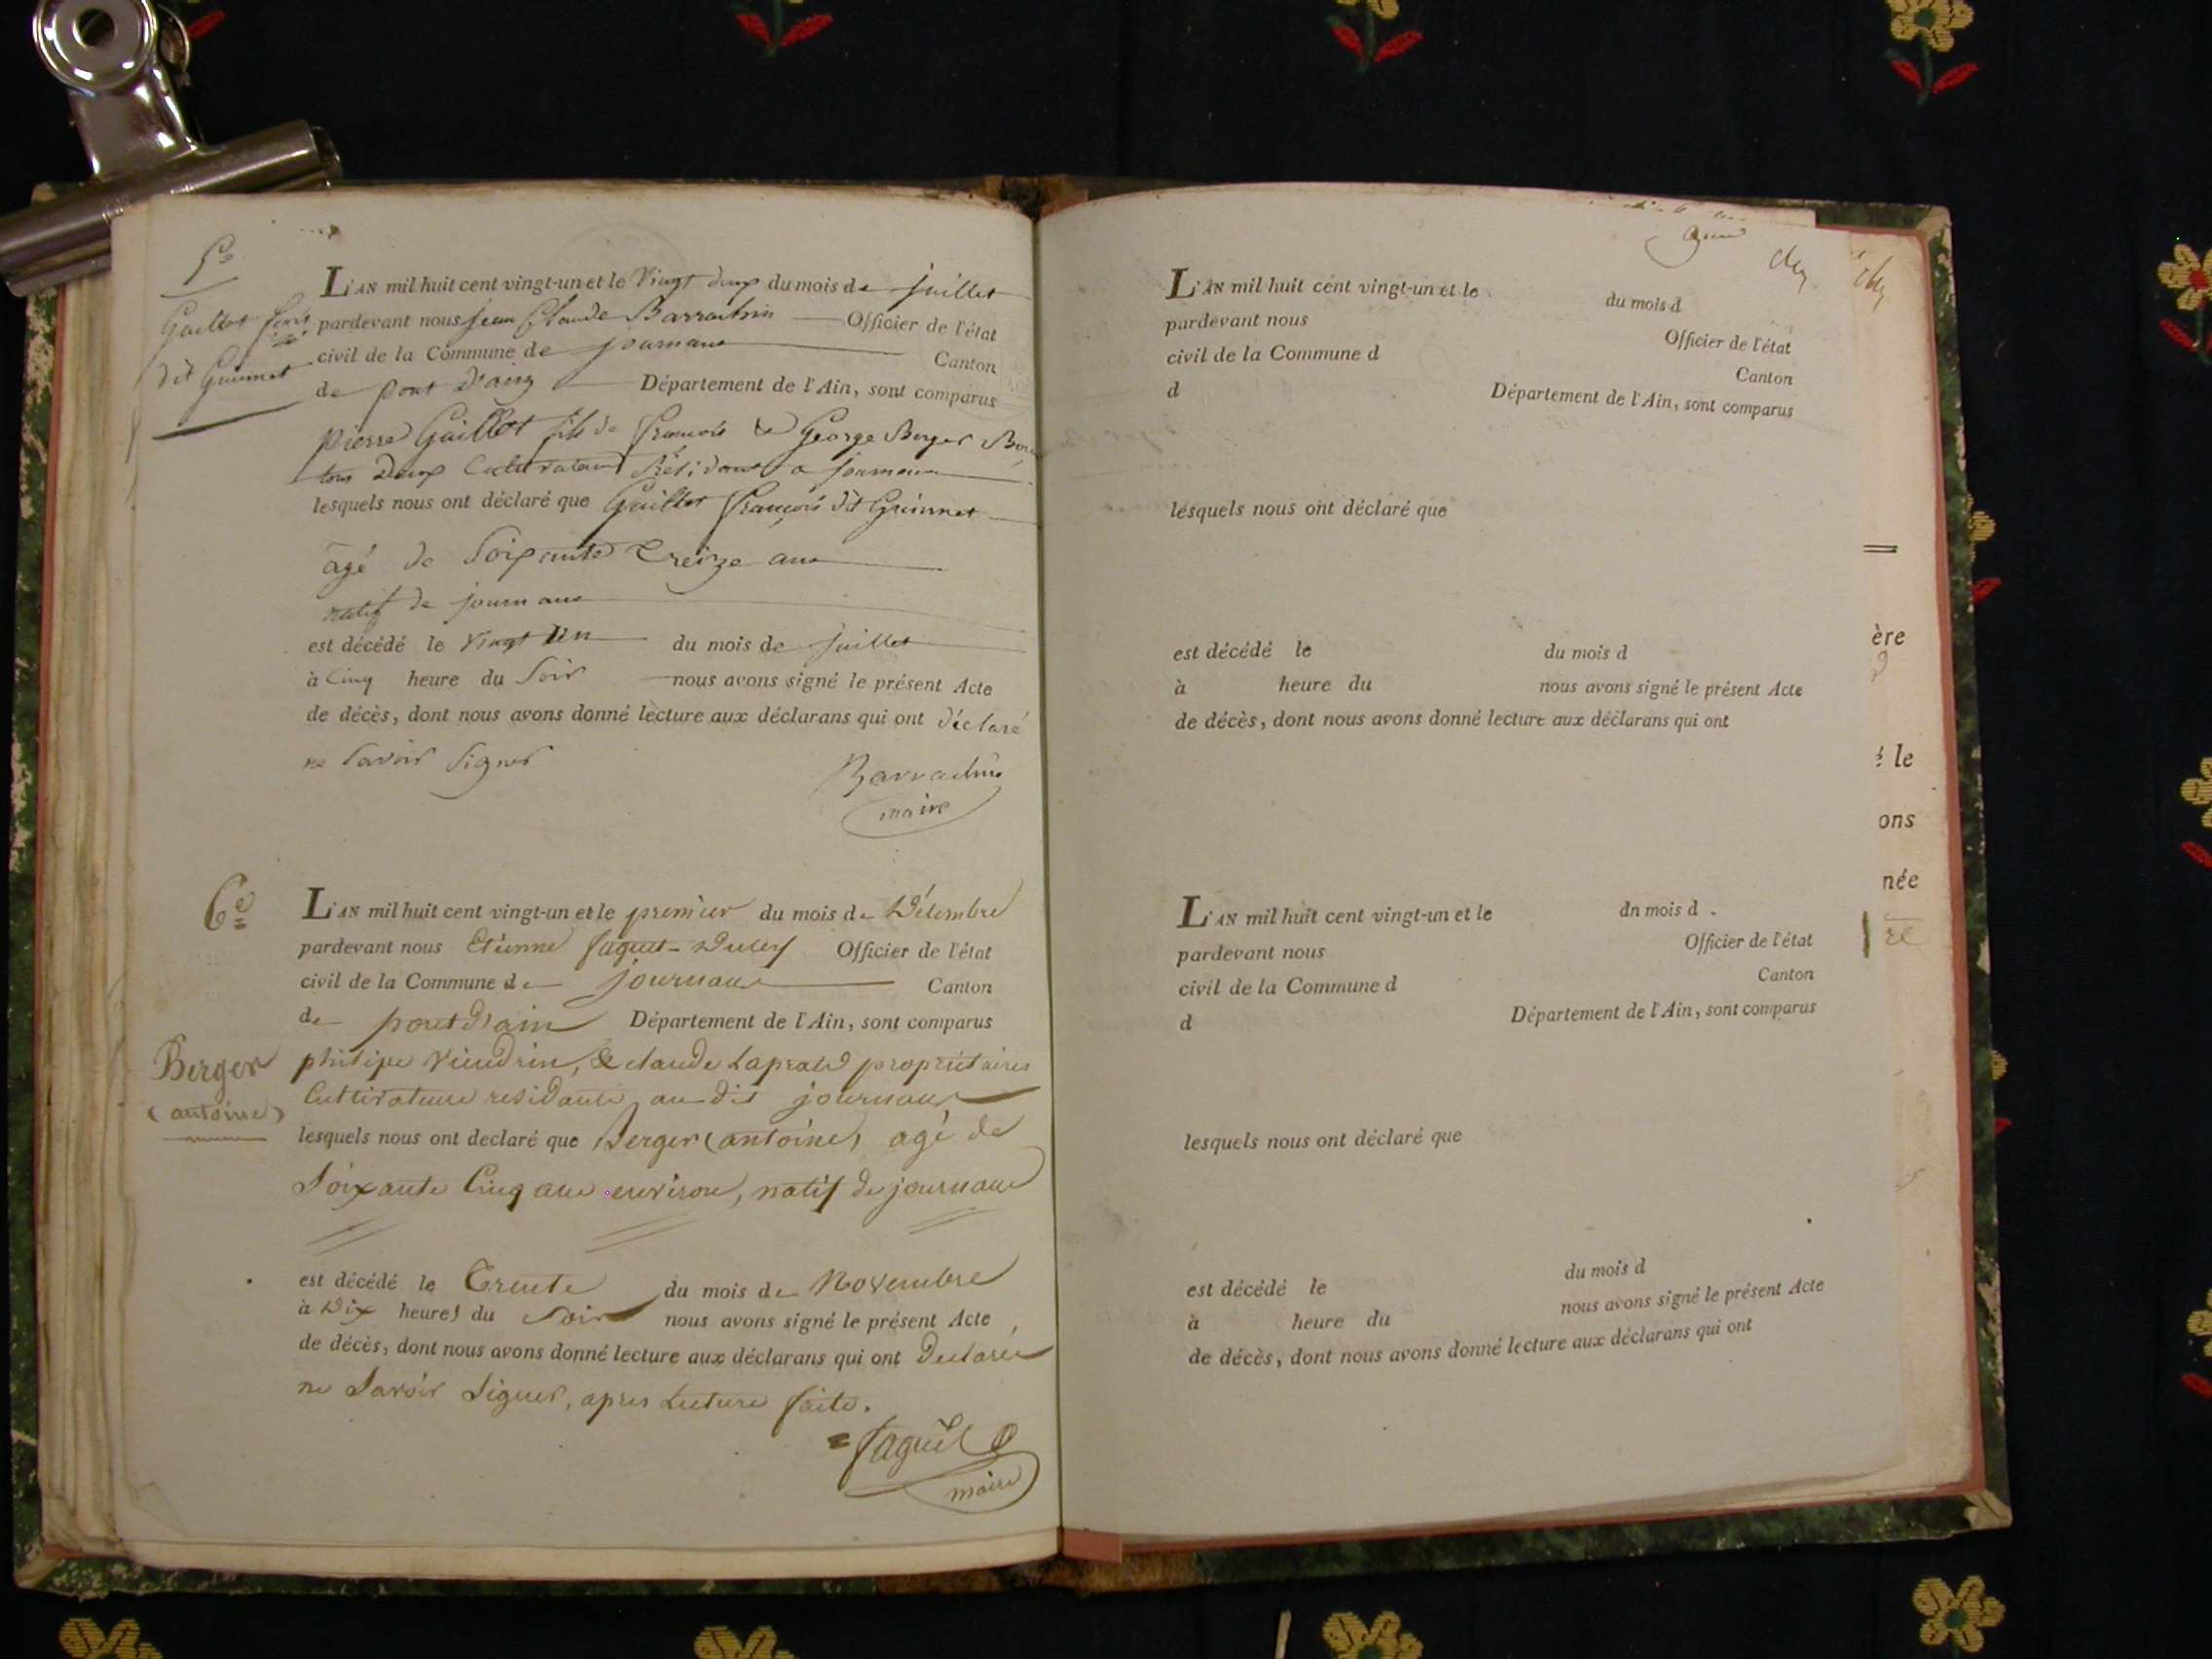 5e
Gaillot
dit Guimet
L'AN mil huit cent vingt-un et le Vingt deux du mois de juillet
pardevant nous Jean Claude Barrachin Officier de l'état
civil de la Commune de journans Canton
de pont d'ain Département de l'Ain, sont comparus
pierre Gaillot fils de francois & George Berger
tous deux Cultivateurs Résidant a journans
lesquels nous ont déclaré que Gaillot françois dit Guimet
agé de Soixante treize ans
natif de journans
est décédé le Vingt un du mois de juillet
à Cinq heure du Soir nous avons signé le présent Acte
de décès, dont nous avons donné lecture aux déclarans qui ont déclaré
ne Savoir Signer
Barrachin
maire
6e
Berger
(antoine)
L'AN mil huit cent vingt-un et le premier du mois de Décembre
pardevant nous Etienne faguet Officier de l'état
civil de la Commune de journans Canton
de pont d'ain Département de l'Ain, sont comparus
philipe & claude Laprade propriétaires
Cultivateurs residants au dit journans
lesquels nous ont declaré que Berger (antoine) agé de
Soixante Cinq ans environ, natif de journans
est décédé le Trente du mois de Novembre
à Dix heures du Soir nous avons signé le présent Acte
de décès, dont nous avons donné lecture aux déclarans qui ont Declarés
ne Savoir Signer, apres Lecture faite.
faguet
maire
L'AN mil huit cent vingt-un et le du mois d
pardevant nous Officier de l'état
civil de la Commune d Canton
d Département de l'Ain, sont comparus
lesquels nous ont déclaré que
est décédé le du mois d
à heure du nous avons signé le présent Acte
de décès, dont nous avons donné lecture aux déclarans qui ont
L'AN mil huit cent vingt-un et le dn mois d
pardevant nous Officier de l'état
civil de la Commune d Canton
d Département de l'Ain, sont comparus
lesquels nous ont déclaré que
est décédé le du mois d
à heure du nous avons signé le présent Acte
de décès, dont nous avons donné lecture aux déclarans qui ont
ère
le
ons
née